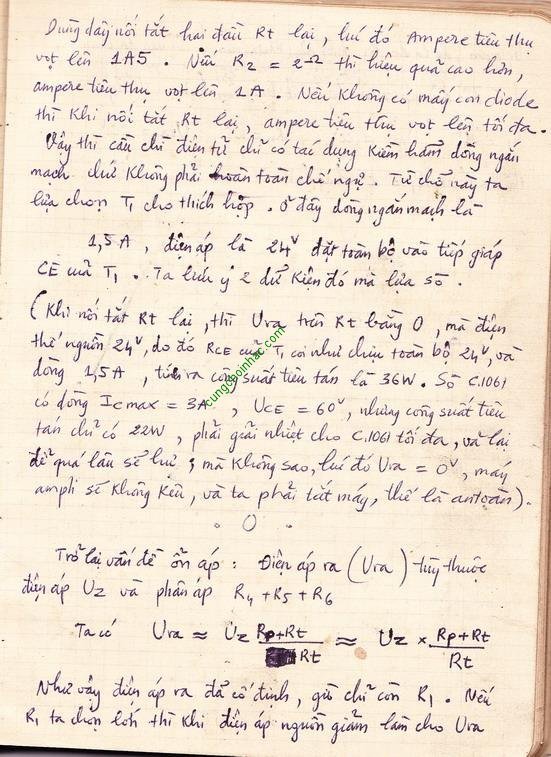 Dùng dây nối tắt hai đầu Rt lại, lúc đó Ampere tiêu thụ
vọt lên 1A5. Nếu R2 = 2Ω thì hiệu quả cao hơn,
ampere tiêu thụ vọt lên 1A. Nếu không có mấy con diode
thì khi nối tắt Rt lại, ampere tiêu thụ vọt lên tối đa.
Vậy thì cầu chì điện tử chỉ có tác dụng kiềm hãm dòng ngắn
mạch chứ không phải hoàn toàn chế ngự. Từ chỗ này ta
lựa chọn T1 cho thích hợp. Ở đây dòng ngắn mạch là
1,5A, điện áp là 24V đặt toàn bộ vào tiếp giáp
CE của T1. Ta lưu ý 2 dữ kiện đó mà lựa sò.
(Khi nối tắt Rt lại, thì Ura trên Rt bằng 0, mà điện
thế nguồn 24V, do đó RCE của T1 coi như chịu toàn bộ 24V, và
dòng 1,5A, tính ra công suất tiêu tán là 36W. Sò C1061
có dòng Icmax = 3A, UCE = 60V, nhưng công suất tiêu
tán chỉ có 22W, phải giải nhiệt cho C1061 tối đa, và lại
để quá lâu sẽ hư; mà không sao, lúc đó Ura = 0V, máy
ampli sẽ không kêu, và ta phải tắt máy, thế là an toàn).
. O .
Trở lại vấn đề ổn áp: Điện áp ra (Ura) tùy thuộc
điện áp UZ và phân áp R4 + R5 + R6
Ta có Ura ≈ UZ (Rp+Rt)/Rt ≈ UZ × (Rp+Rt)/Rt
Như vậy điện áp ra đã cố định, giờ chỉ còn R1. Nếu
R1 ta chọn lớn thì khi điện áp nguồn giảm làm cho Ura
cungchoinhac.com